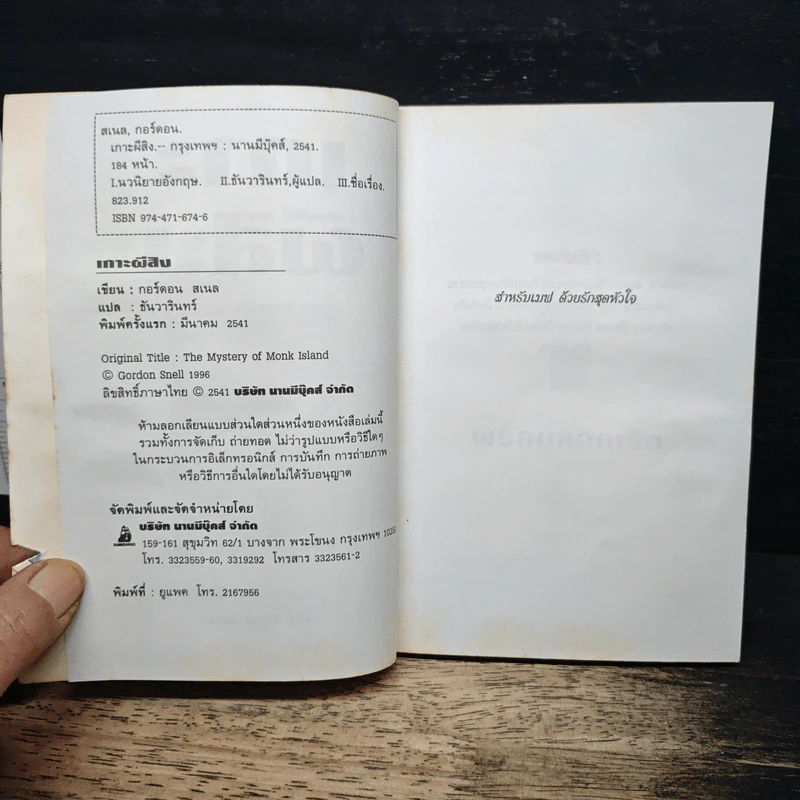 สเนล, กอร์ดอน.
เกาะผีสิง.-- กรุงเทพฯ : นานมีบุ๊คส์, 2541.
184 หน้า.
I.นวนิยายอังกฤษ. II.ธันวารินทร์,ผู้แปล. III.ชื่อเรื่อง.
823.912
ISBN 974-471-674-6
เกาะผีสิง
เขียน : กอร์ดอน สเนล
แปล : ธันวารินทร์
พิมพ์ครั้งแรก : มีนาคม 2541
Original Title : The Mystery of Monk Island
© Gordon Snell 1996
ลิขสิทธิ์ภาษาไทย © 2541 บริษัท นานมีบุ๊คส์ จำกัด
ห้ามลอกเลียนแบบส่วนใดส่วนหนึ่งของหนังสือเล่มนี้
รวมทั้งการจัดเก็บ ถ่ายทอด ไม่ว่ารูปแบบหรือวิธีใดๆ
ในกระบวนการอิเล็กทรอนิกส์ การบันทึก การถ่ายภาพ
หรือวิธีการอื่นใดโดยไม่ได้รับอนุญาต
จัดพิมพ์และจัดจำหน่ายโดย
บริษัท นานมีบุ๊คส์ จำกัด
159-161 สุขุมวิท 62/1 บางจาก พระโขนง กรุงเทพฯ
โทร. 3323559-60, 3319292 โทรสาร 3323561-2
พิมพ์ที่ : ยูแพค โทร. 2167956
สำหรับเมฟ ด้วยรักสุดหัวใจ